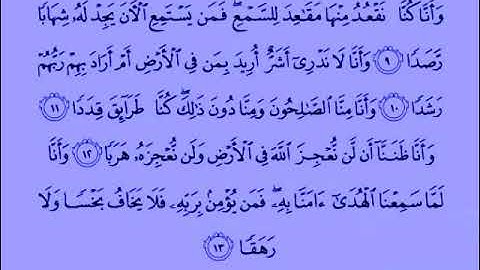 وَأَنَّا كُنَّا نَقْعُدُ مِنْهَا مَقَٰعِدَ لِلسَّمْعِ ۖ فَمَن يَسْتَمِعِ ٱلْأَنَ يَجِدْ لَهُۥ شِهَابًا
رَّصَدًا ٩ وَأَنَّا لَا نَدْرِىٓ أَشَرٌّ أُرِيدَ بِمَن فِى ٱلْأَرْضِ أَمْ أَرَادَ بِهِمْ رَبُّهُمْ
رَشَدًا ١٠ وَأَنَّا مِنَّا ٱلصَّٰلِحُونَ وَمِنَّا دُونَ ذَٰلِكَ ۖ كُنَّا طَرَآئِقَ قِدَدًا ١١
وَأَنَّا ظَنَنَّآ أَن لَّن نُّعْجِزَ ٱللَّهَ فِى ٱلْأَرْضِ وَلَن نُّعْجِزَهُۥ هَرَبًا ١٢ وَأَنَّا
لَمَّا سَمِعْنَا ٱلْهُدَىٰٓ ءَامَنَّا بِهِۦ ۖ فَمَن يُؤْمِنۢ بِرَبِّهِۦ فَلَا يَخَافُ بَخْسًا وَلَا
رَهَقًا ١٣